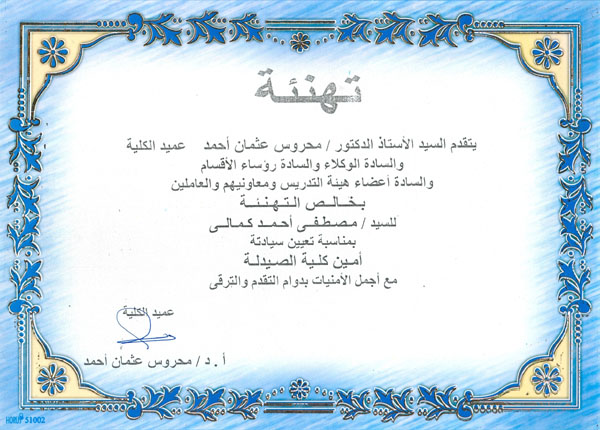 تهنئة
يتقدم السيد الأستاذ الدكتور / محروس عثمان أحمد عميد الكلية
والسادة الوكلاء والسادة رؤساء الأقسام
والسادة أعضاء هيئة التدريس ومعاونيهم والعاملين
بخالص التهنئة
للسيد / مصطفى أحمد كمالى
بمناسبة تعيين سيادتة
أمين كلية الصيدلة
مع أجمل الأمنيات بدوام التقدم والترقى
عميد الكلية
أ . د / محروس عثمان أحمد
HORUS 51002